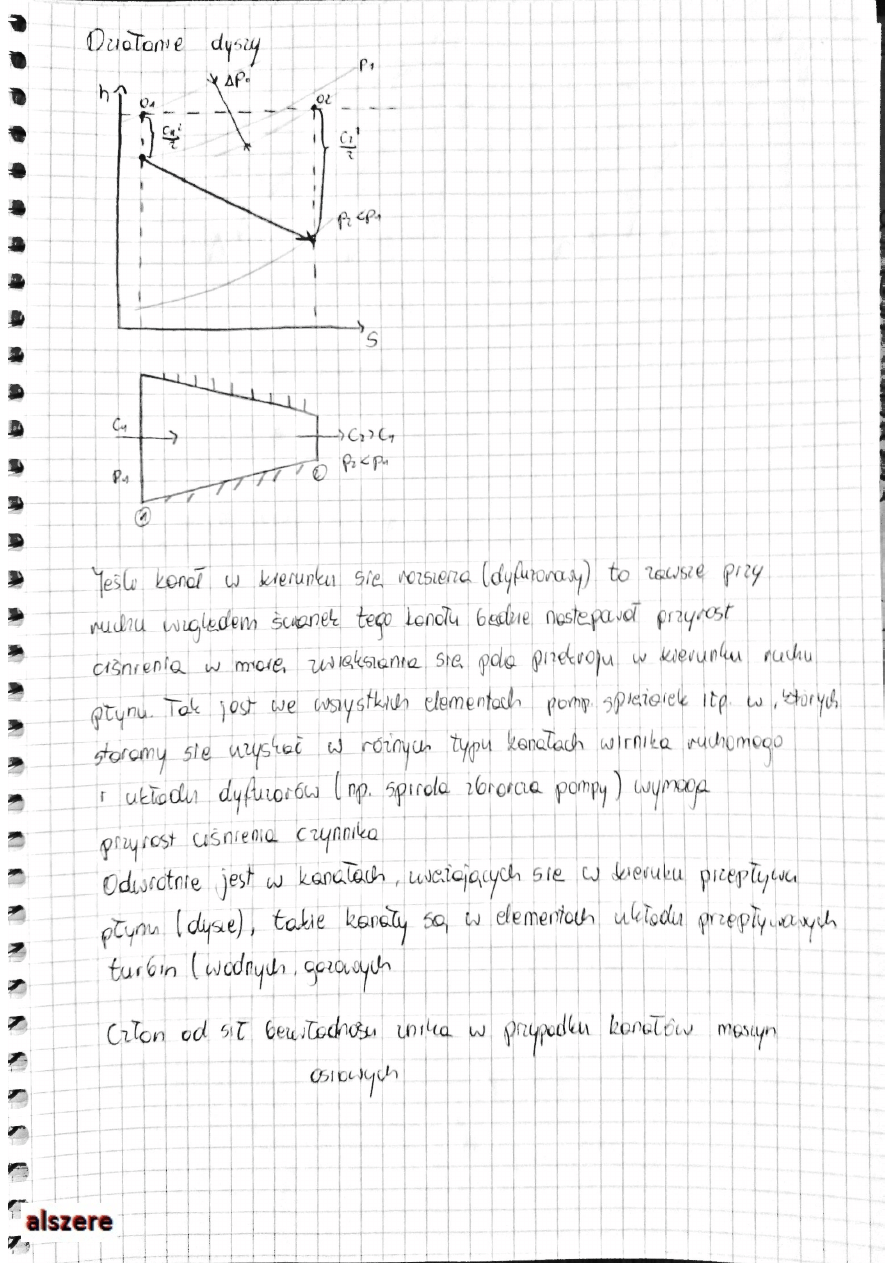 Działanie dyszy
h
01
ΔP0
02
P1
C1²/2
C2²/2
P2<P1
S
C1
C2>C1
P1
P2<P1
1
2
Jeśli kanał w kierunku się rozsierza (dyfuzorowy) to zawsze przy
ruchu względem ścianek tego kanału będzie nastepował przyrost
ciśnienia w miarę zwiększania się pola przekroju w kierunku ruchu
płynu. Tak jest we wszystkich elementach pomp. sprężarek itp. w, których
staramy sie uzyskać w różnych typu kanałach wirnika ruchomego
i układu dyfuzorów (np. spirala zbiorcza pompy) wymaga
przyrost ciśnienia czynnika
Odwrotnie jest w kanałach, zwężających sie w kieruku przepływu
płynu (dysze), takie kanały są w elementach układu przepływowych
turbin (wodnych, gazowych
Człon od sił bezwładności znika w przypadku kanałów maszyn
osiowych
alszere